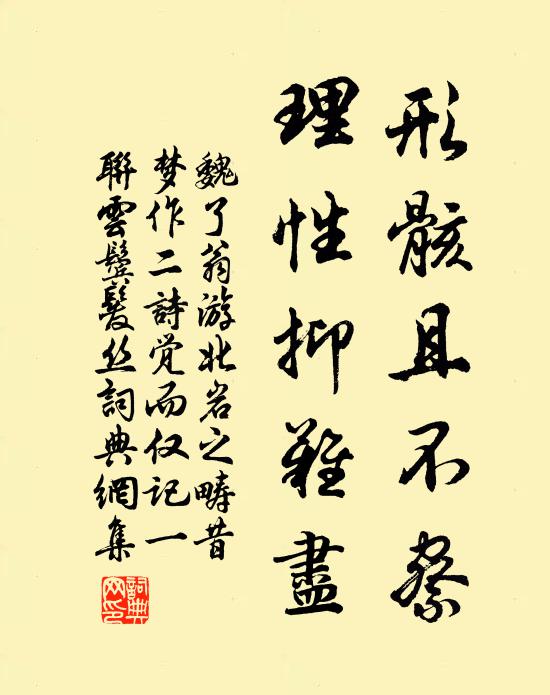 形骸且不察
理性抑難盡
魏了翁游北岩之疇昔
梦作二詩觉而仅記一
聯雲鬢髮丝詞典網集
詞典网印